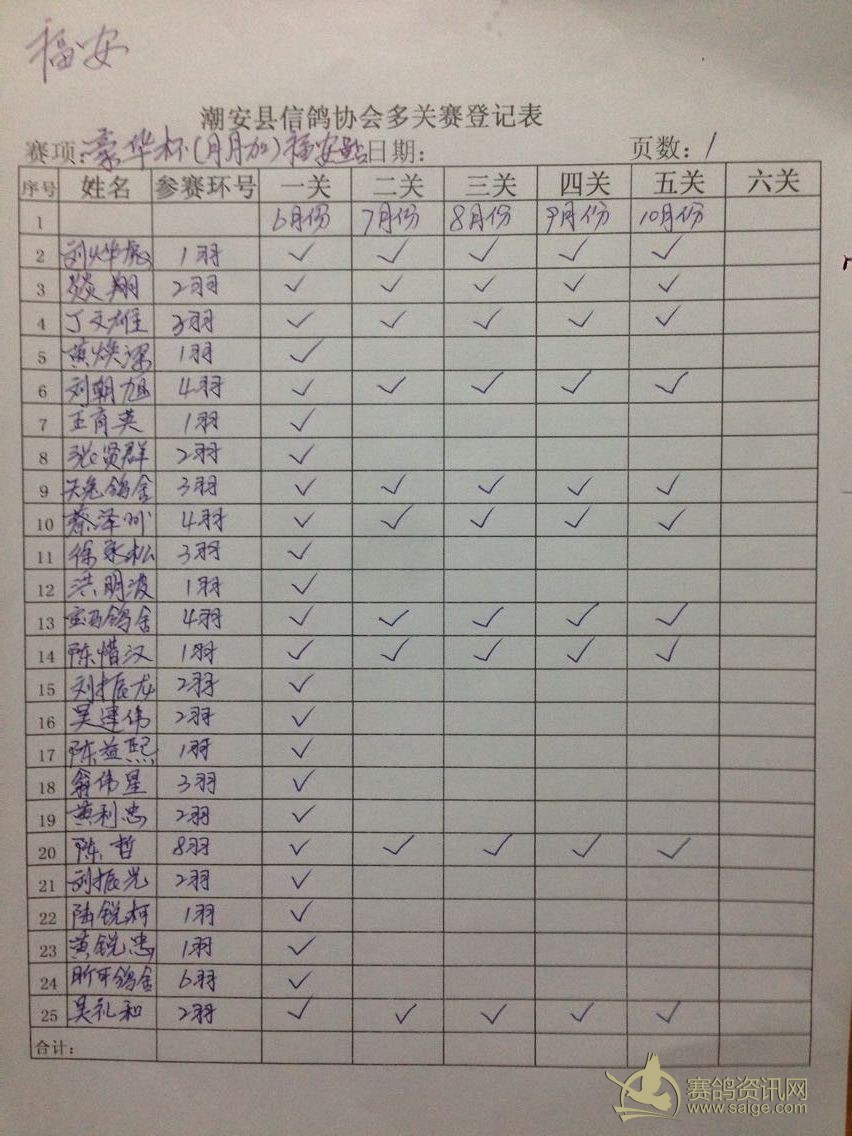 福安
潮安县信鸽协会多关赛登记表
赛项:豪华杯(月月加)福安站日期: 页数:1
序号 姓名 参赛环号 一关 二关 三关 四关 五关 六关
1 6月份 7月份 8月份 9月份 10月份
2 1羽 ✓ ✓ ✓ ✓ ✓
3 翔 2羽 ✓ ✓ ✓ ✓ ✓
4 丁文雄 3羽 ✓ ✓ ✓ ✓ ✓
5 黄焕深 1羽 ✓
6 刘朝旭 4羽 ✓ ✓ ✓ ✓ ✓
7 王育英 1羽 ✓
8 张贤群 2羽 ✓
9 天兔鸽舍 3羽 ✓ ✓ ✓ ✓ ✓
10 蔡泽 4羽 ✓ ✓ ✓ ✓ ✓
11 徐永松 3羽 ✓
12 洪明波 1羽 ✓
13 宝马鸽舍 4羽 ✓ ✓ ✓ ✓ ✓
14 陈惜汉 1羽 ✓ ✓ ✓ ✓ ✓
15 刘振龙 2羽 ✓
16 吴运伟 2羽 ✓
17 陈益熙 1羽 ✓
18 翁伟星 3羽 ✓
19 黄利忠 2羽 ✓
20 陈哲 8羽 ✓ ✓ ✓ ✓ ✓
21 刘振光 2羽 ✓
22 陆锐柯 1羽 ✓
23 黄锐忠 1羽 ✓
24 鸽舍 6羽 ✓
25 吴礼和 2羽 ✓ ✓ ✓ ✓ ✓
合计:
赛鸽资讯网
www.saige.com